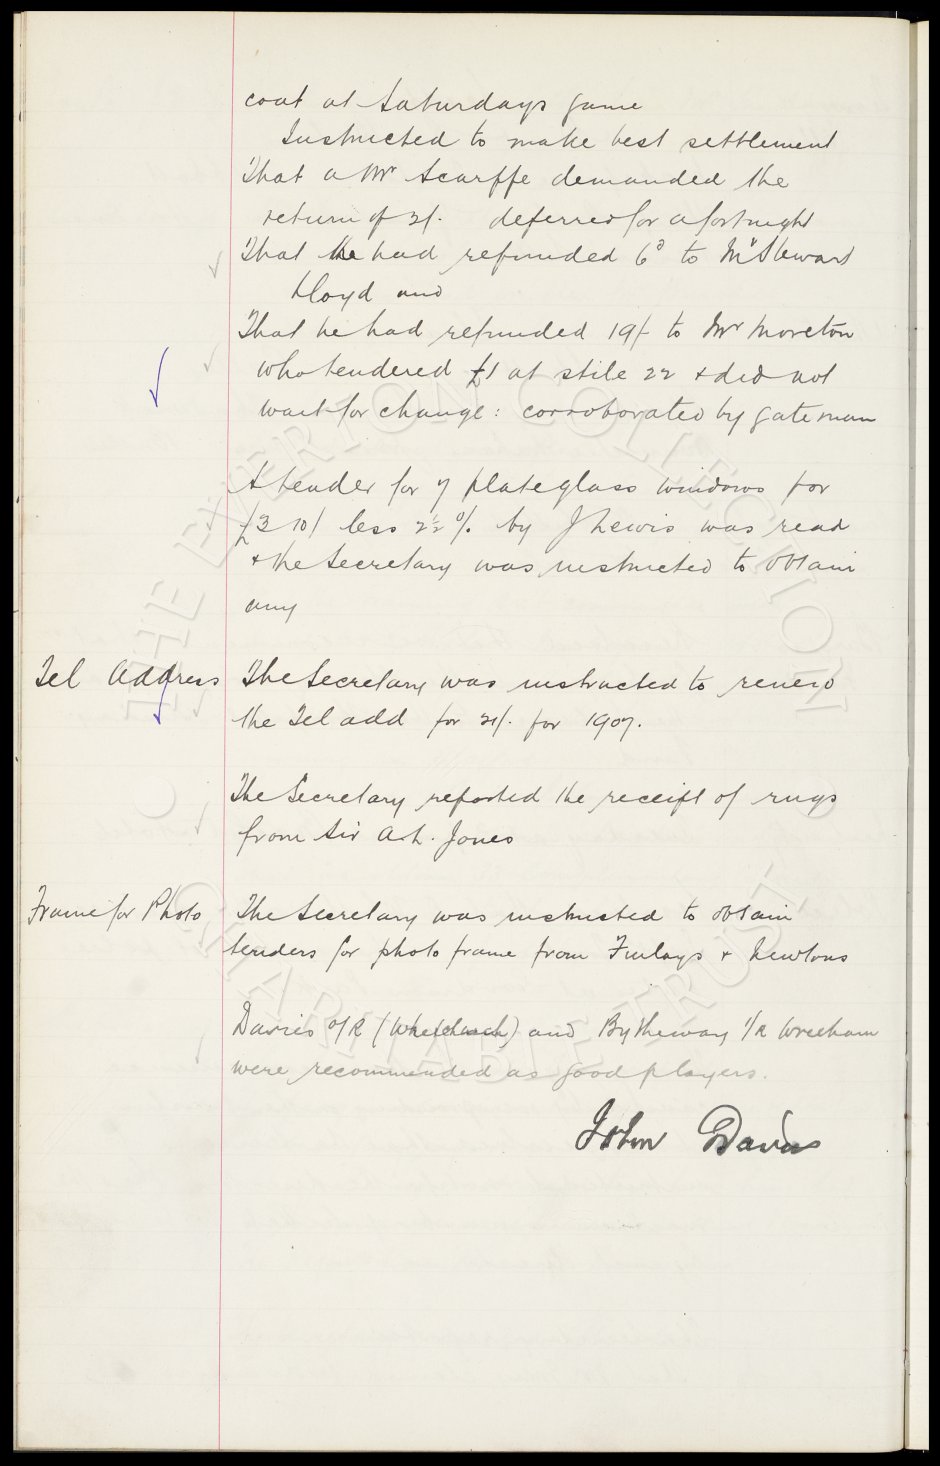 coat at Saturdays game
Instructed to make best settlement
That a Mr Scarffe demanded the
return of 2/-. deferred for a fortnight
That he had refunded 6d to Mr Stewart
Lloyd and
That he had refunded 19/- to Mr Moreton
who tendered £1 at stile 22 & did not
wait for change: corroborated by gateman
A tender for 7 plateglass windows for
£3 10/ less 2½ % by J Lewis was read
& the Secretary was instructed to obtain
any
Tel Address
The Secretary was instructed to renew
the Tel add for 21/. for 1907.
The Secretary reported the receipt of rugs
from Sir A.L. Jones
Frame for Photo
The Secretary was instructed to obtain
tenders for photo frame from Finlays & Newtons
Davies O/R (Whitchurch) and Bytheway I/R Wrexham
were recommended as good players.
John Davies
THE EVERTON COLLECTION
CHARITABLE TRUST